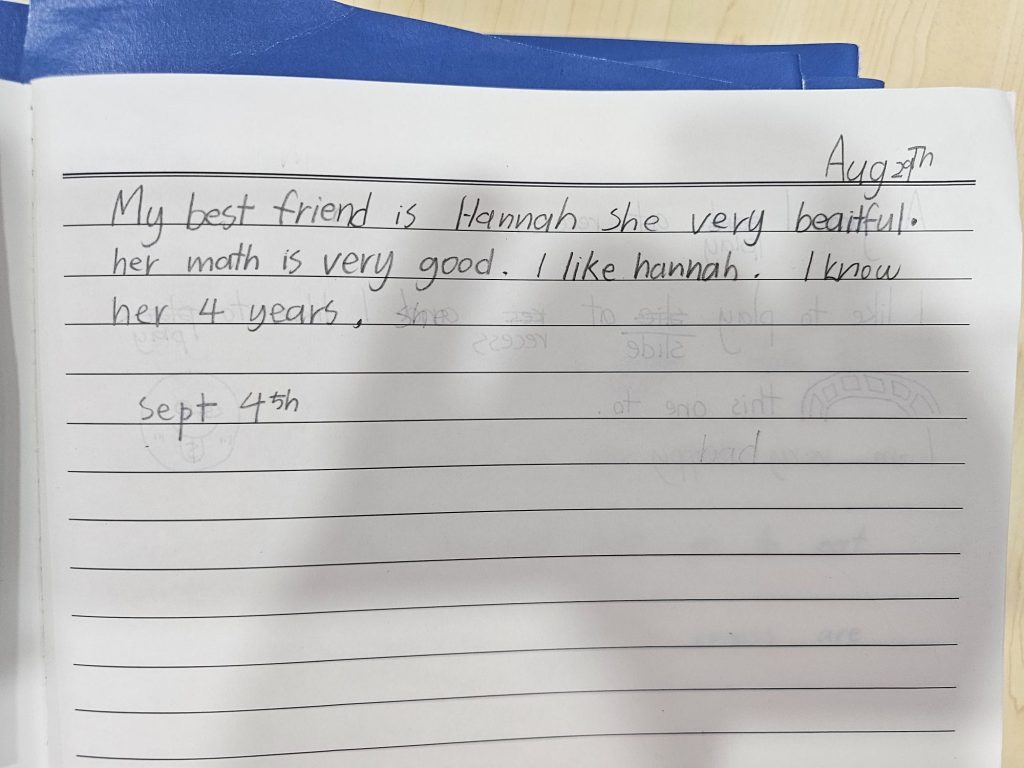 Aug 29Th
My best friend is Hannah she very beaitful.
her math is very good. I like hannah. I know
her 4 years,
Sept 4th